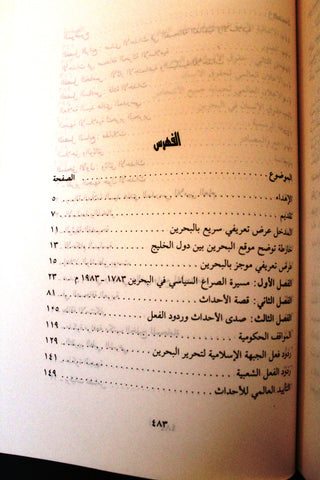 الفهرس
الموضوع ........ الصفحة
الإهداء ........ ٥
تقديم ........ ٧
المدخل عرض تعريفي سريع بالبحرين ........ ١١
خارطة توضح موقع البحرين بين دول الخليج ........ ١٣
عرض تعريفي موجز بالبحرين ........ ١٥
الفصل الأول: مسيرة الصراع السياسي في البحرين ١٧٨٣ - ١٩٨٣ م ٢٣
الفصل الثاني: قصة الأحداث ........ ٨١
الفصل الثالث: صدى الأحداث وردود الفعل ........ ١٠٥
المواقف الحكومية ........ ١١٩
ردود فعل الجبهة الإسلامية لتحرير البحرين ........ ١٢٩
ردود الفعل الشعبية ........ ١٤١
التأييد العالمي للأحداث ........ ١٤٩
٤٨٣